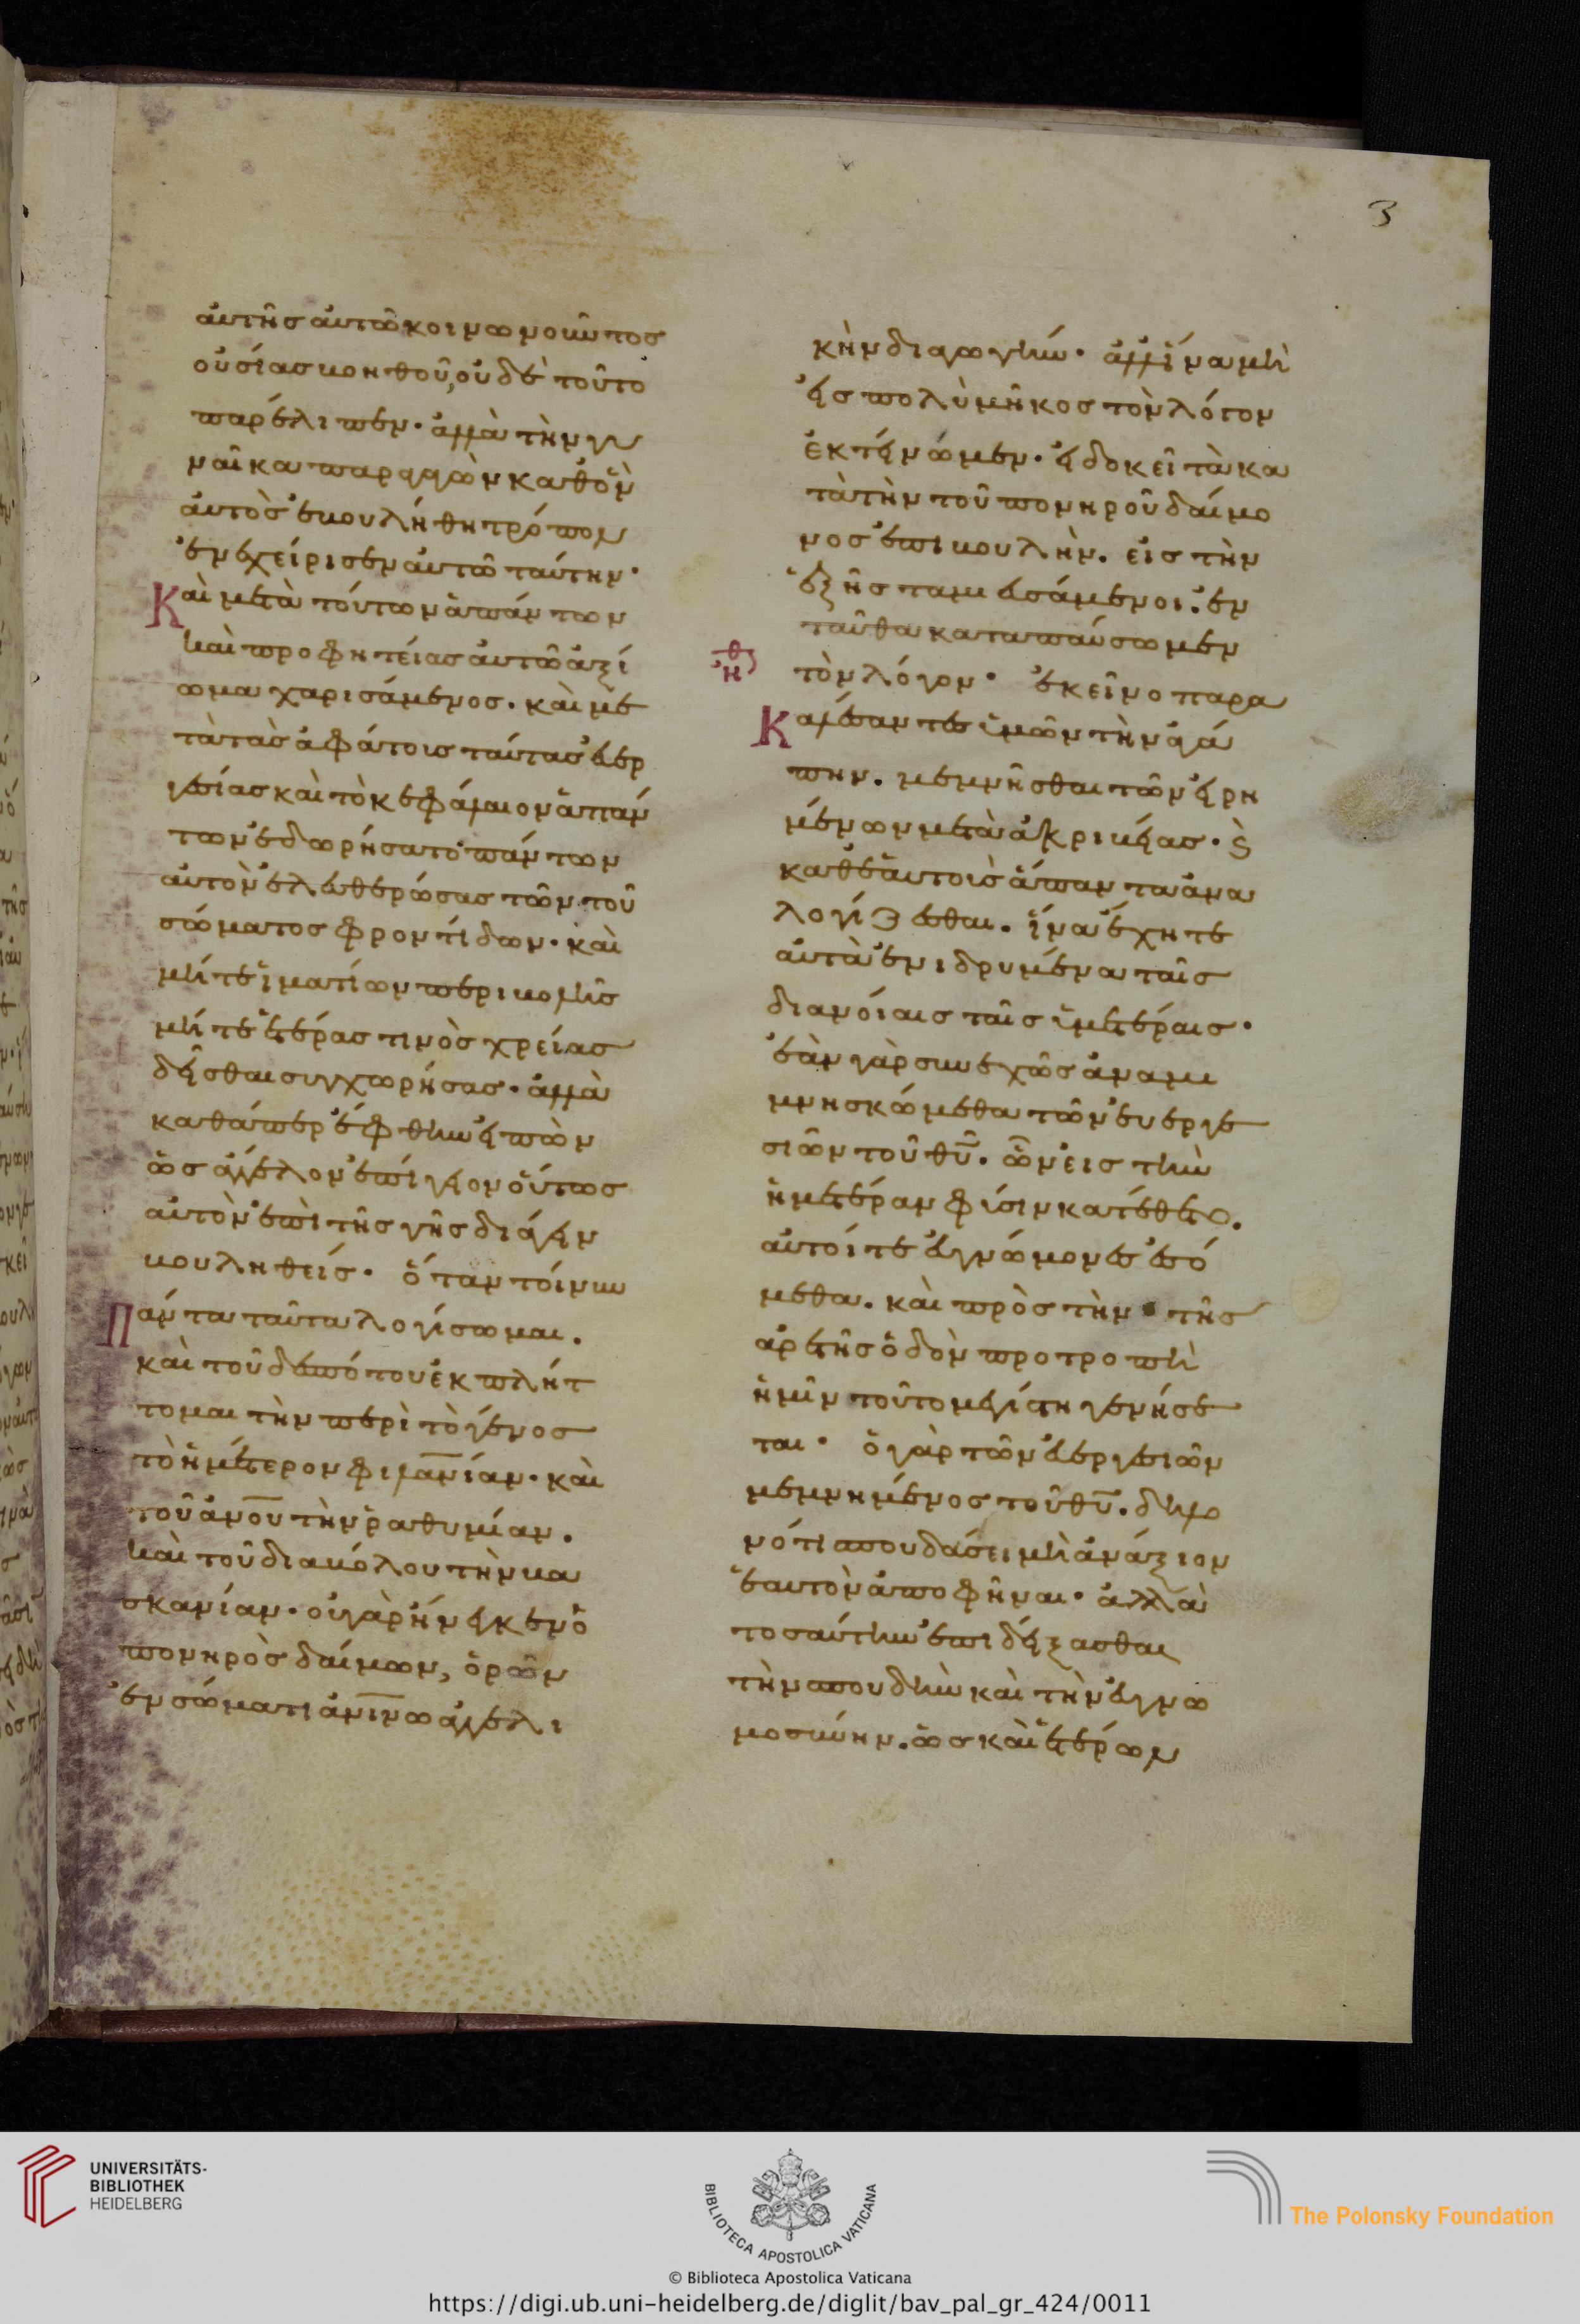 3
αὐτῆς αὐτῶ κοινωνοῦντος
οὐσίας βοηθοῦ, οὐδὲ τοῦτο
παρέλιπεν· ἀλλὰ τὴν γυ
ναῖκα παραγαγὼν καθ ὃν
αὐτὸς ἐβουλήθη τρόπον
ἐνεχείρισεν αὐτῶ ταύτην·
Καὶ μετὰ τούτων ἁπάντων
καὶ προφητείας αὐτῶ ἀξί
ωμα χαρισάμενος. καὶ με
τὰ τὰς ἀφάτους ταύτας εὐερ
γεσίας καὶ τὸ κεφάλαιον ἁπάν
των ἐδωρήσατο πάντων
αὐτὸν ἐλευθερώσας τῶν τοῦ
σώματος φροντίδων· καὶ
μήτε ἱματίων περιβολῆς
μήτε ἑτέρας τινὸς χρείας
δεῖσθαι συγχωρήσας· ἀλλὰ
καθάπερ ἔφθην εἰπὼν
ὡς ἄγγελον ἐπίγειον οὕτως
αὐτὸν ἐπὶ τῆς γῆς διάγειν
βουληθείς· ὅταν τοίνυν
Πάντα ταῦτα λογίσωμαι.
καὶ τοῦ δεσπότου ἐκπλήτ
τομαι τὴν περὶ τὸ γένος
τὸ ἡμέτερον φιλανίαν· καὶ
τοῦ ἀνου τὴν ῥαθυμίαν.
καὶ τοῦ διαβόλου τὴν βα
σκανίαν· οὐ γὰρ ἤνεγκεν ὁ
πονηρὸς δαίμων, ὁρῶν
ἐν σώματι ἀνινω ἀγγελι
κὴν διαγωγήν· ἀλλ ἵνα μὴ
εἰς πολὺ μῆκος τὸν λόγον
ἐκτείνωμεν· εἰ δοκεῖ τὰ κα
τὰ τὴν τοῦ πονηροῦ δαίμο
νος ἐπιβουλὴν. εἰς τὴν
ἑξῆς ταμιευσάμενοι· ἐν
ταῦθα καταπαύσωμεν
τὸν λόγον· ἐκεῖνο παρα
Καλέσαντες ὑμῶν τὴν ἀγά
πην. μεμνῆσθαι τῶν εἰρη
μένων μετὰ ἀκριβείας· ϗ
καθ ἑαυτοὺς ἅπαντα ἀνα
λογίζεσθαι. ἵνα ἔχητε
αὐτὰ ἐνιδρυμένα ταῖς
διανοίαις ταῖς ὑμετέραις·
ἐὰν γὰρ συνεχῶς ἀναμι
μνησκώμεθα τῶν εὐεργε
σιῶν τοῦ θυ. ὧν εἰς τὴν
ἡμετέραν φύσιν κατέθετο.
αὐτοί τε εὐγνώμονες ἐσό
μεθα. καὶ πρὸς τὴν τῆς
ἀρετῆς ὁδὸν προτροπὴ
ἡμῖν τοῦτο μεγίστη γενήσε
ται· ὁ γὰρ τῶν εὐεργεσιῶν
μεμνημένος τοῦ θυ. δῆλο
νότι σπουδάσει μὴ ἀνάξιον
ἑαυτὸν ἀποφῆναι· ἀλλὰ
τοσαύτην ἐπιδείξασθαι
τὴν σπουδὴν καὶ τὴν εὐγνω
μοσύνην. ὡς καὶ ἑτέρων
UNIVERSITÄTS-
BIBLIOTHEK
HEIDELBERG
BIBLIOTECA APOSTOLICA VATICANA
The Polonsky Foundation
© Biblioteca Apostolica Vaticana
https://digi.ub.uni-heidelberg.de/diglit/bav_pal_gr_424/0011